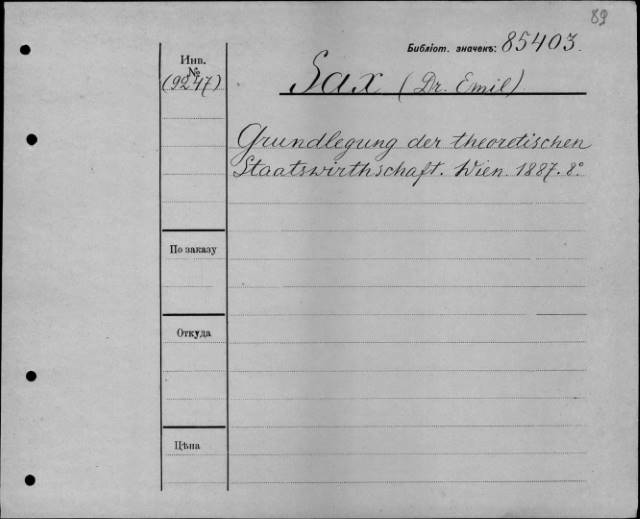 89
Библіот. значекъ: 85403.
Инв.
№
(9247)
Sax (Dr. Emil)
Grundlegung der theoretischen
Staatswirthschaft. Wien. 1887. 8°.
По заказу
Откуда
Цѣна